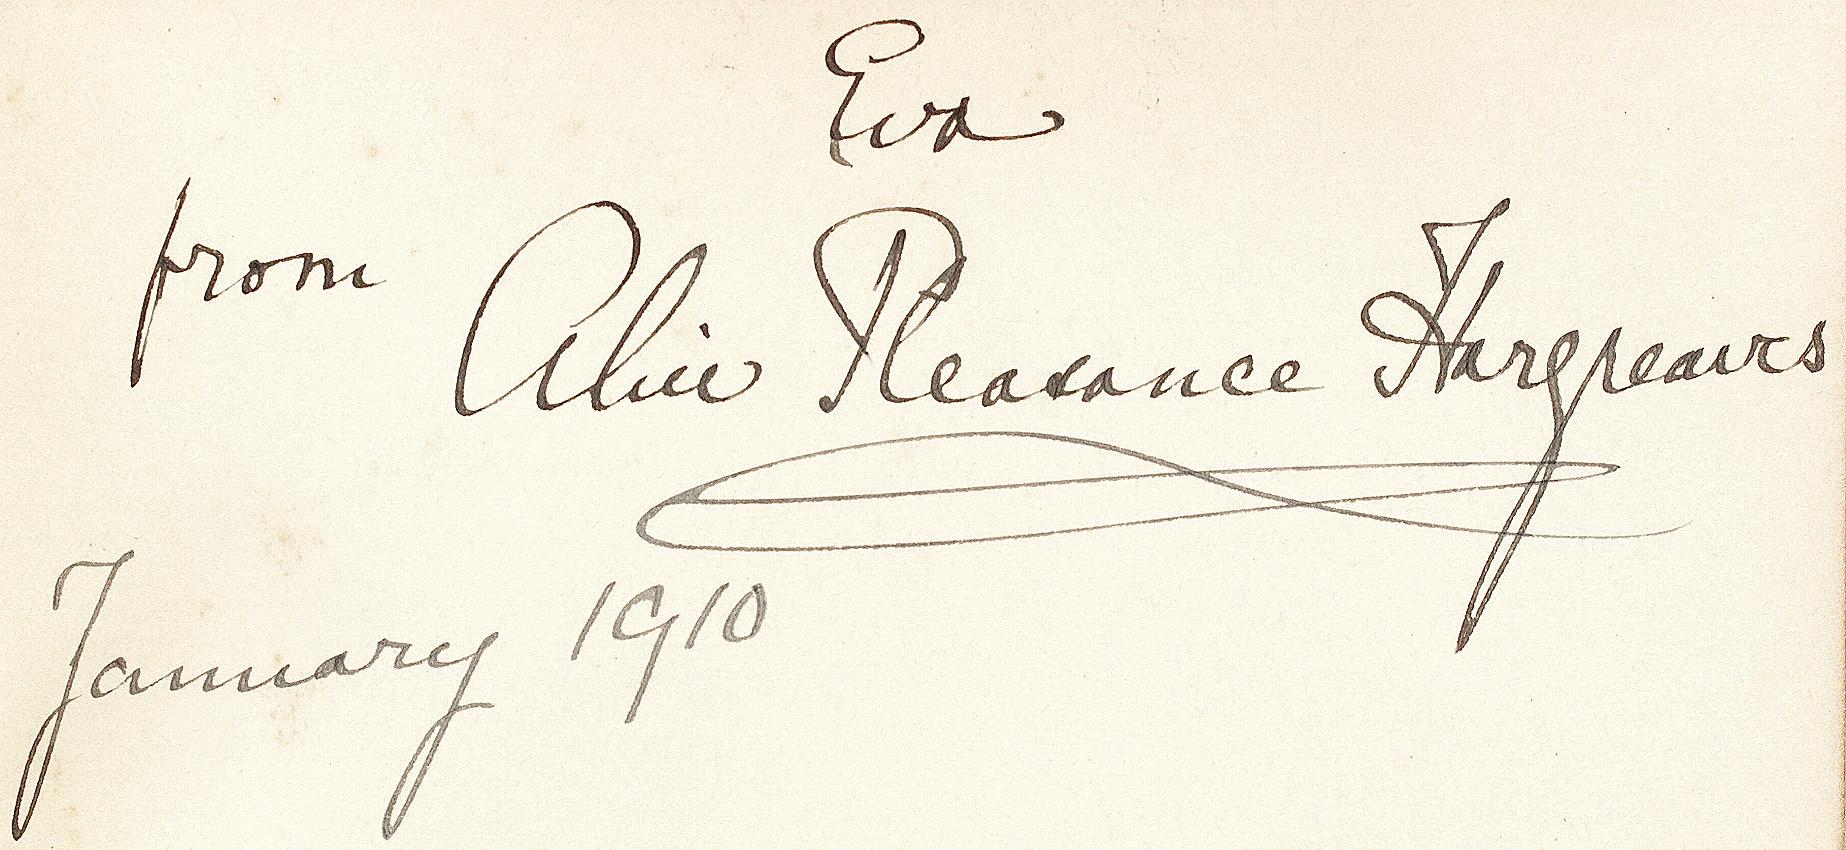 Eva
from Alice Pleasance Hargreaves
January 1910